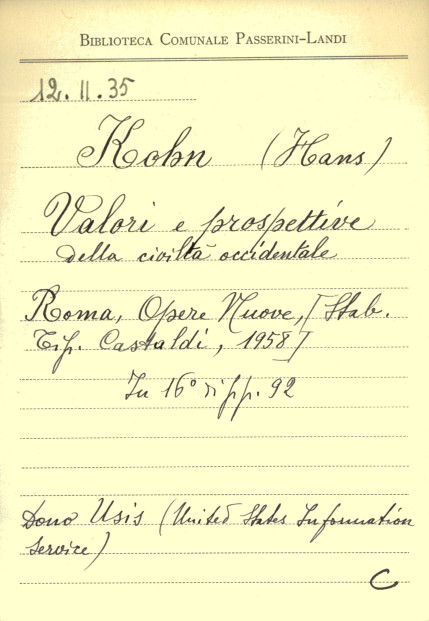 BIBLIOTECA COMUNALE PASSERINI-LANDI
12.11.35
Kohn (Hans)
Valori e prospettive
della civiltà occidentale
Roma, Opere Nuove, [Stab.
Tip. Castaldi, 1958]
In 16° di pp. 92
Dono Usis (United States Information
Service)
C